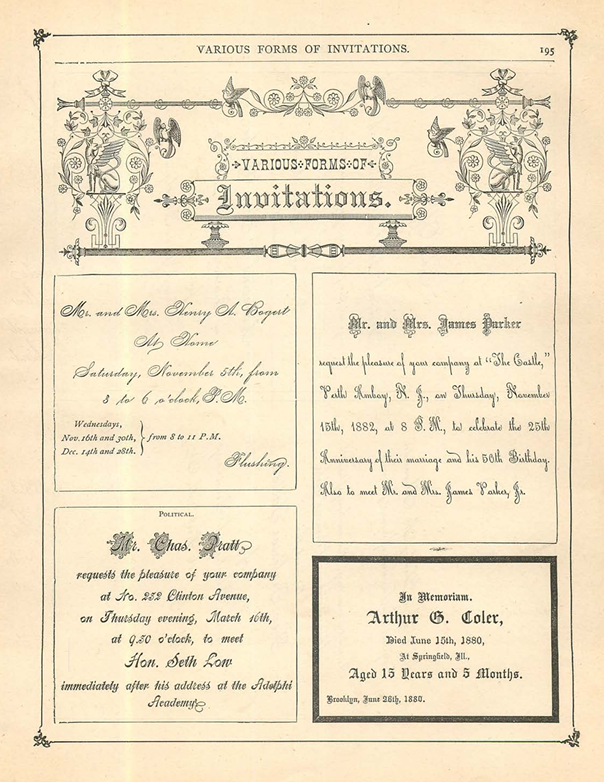 VARIOUS FORMS OF INVITATIONS.
195
VARIOUS FORMS OF
Invitations.
Mr. and Mrs. Henry A. Bogert
At Home
Saturday, November 5th, from
3 to 6 o'clock, P.M.
Wednesdays,
Nov. 16th and 30th,
Dec. 14th and 28th.
from 8 to 11 P.M.
Flushing.
POLITICAL.
Mr. Chas. Pratt
requests the pleasure of your company
at No. 232 Clinton Avenue,
on Thursday evening, March 16th,
at 9.30 o'clock, to meet
Hon. Seth Low
immediately after his address at the Adelphi
Academy
Mr. and Mrs. James Parker
request the pleasure of your company at "The Castle,"
Perth Amboy, N. J., on Thursday, November
15th, 1882, at 8 P.M., to celebrate the 25th
Anniversary of their marriage and his 50th Birthday.
Also to meet Mr. and Mrs. James Parker, Jr.
In Memoriam.
Arthur G. Coler,
Died June 15th, 1880,
At Springfield, Ill.,
Aged 15 Years and 5 Months.
Brooklyn, June 26th, 1880.